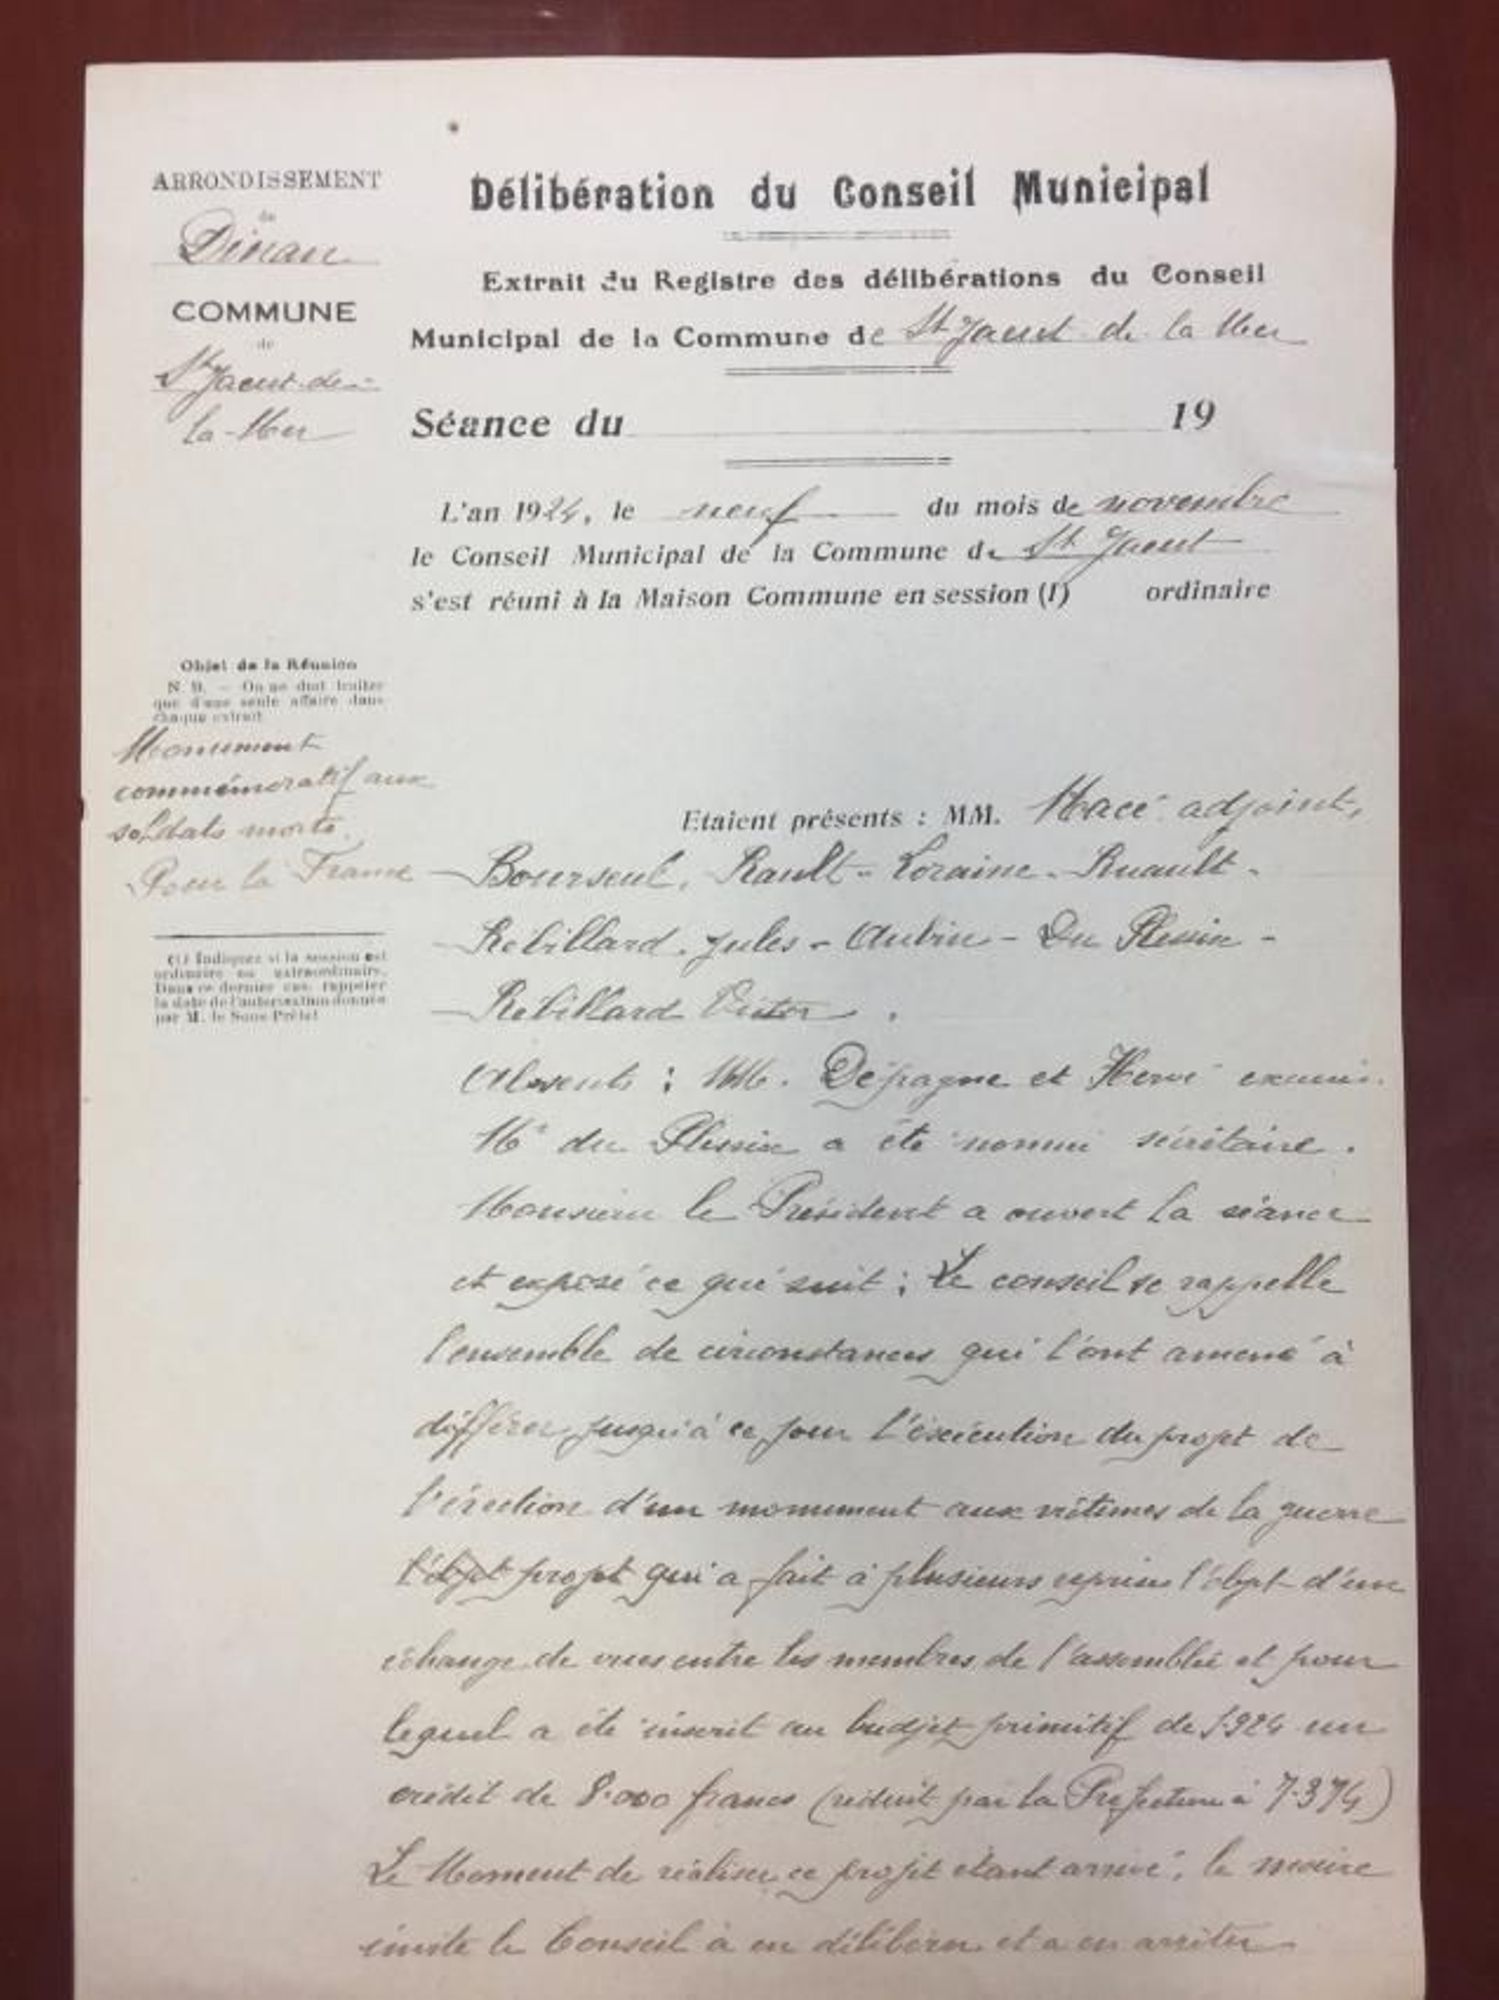 ARRONDISSEMENT
de
Dinan
COMMUNE
de
St Jacut-de-
la-Mer
Délibération du Conseil Municipal
Extrait du Registre des délibérations du Conseil
Municipal de la Commune de St Jacut de la Mer
Séance du 19
L'an 1924, le neuf du mois de novembre
le Conseil Municipal de la Commune de St Jacut
s'est réuni à la Maison Commune en session (1) ordinaire
Objet de la Réunion
N. B. — On ne doit traiter
que d'une seule affaire dans
chaque extrait
Monument
commémoratif aux
soldats morts
Pour la France
(1) Indiquez si la session est
ordinaire ou extraordinaire.
Dans ce dernier cas, rappeler
la date de l'autorisation donnée
par M. le Sous-Préfet
Etaient présents : MM. Macé adjoint,
Bourseul, Rault - Loraine - Ruault -
Rebillard Jules - Aubin - Du Plessix -
Rebillard Victor.
Absents : MM. Dépagne et Hervé excusés.
Mr du Plessix a été nommé sécrétaire.
Monsieur le Président a ouvert la séance
et exposé ce qui suit : Le conseil se rappelle
l'ensemble de circonstances qui l'ont amené à
différer jusqu'à ce jour l'éxécution du projet de
l'érection d'un monument aux victimes de la guerre
l'objet projet qui a fait à plusieurs reprises l'objet d'un
échange de vues entre les membres de l'assemblée et pour
lequel a été inscrit au budjet primitif de 1924 un
crédit de 8.000 francs (réduit par la Préfecture à 7.374)
Le Moment de réaliser ce projet étant arrivé, le maire
invite le Conseil à en délibérer et a en arrêter